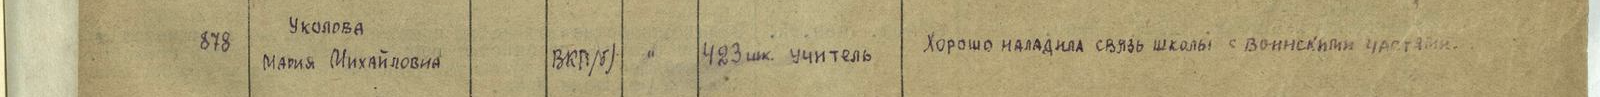 Уколова
878 Мария Михайловна ВКП/б/ " 423 шк. учитель Хорошо наладила связь школы с воинскими частями.